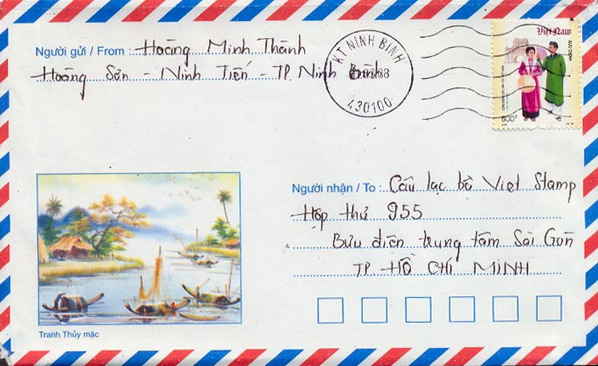 Người gửi / From : Hoàng Minh Thành
Hoàng Sơn - Ninh Tiến - TP. Ninh Bình
KT NINH BINH
430100
Việt Nam
BƯU CHÍNH
800đ
Người nhận / To : Câu lạc bộ Viet Stamp
Hộp thư 955
Bưu điện trung tâm Sài Gòn
TP HỒ CHÍ MINH
Tranh Thủy mặc